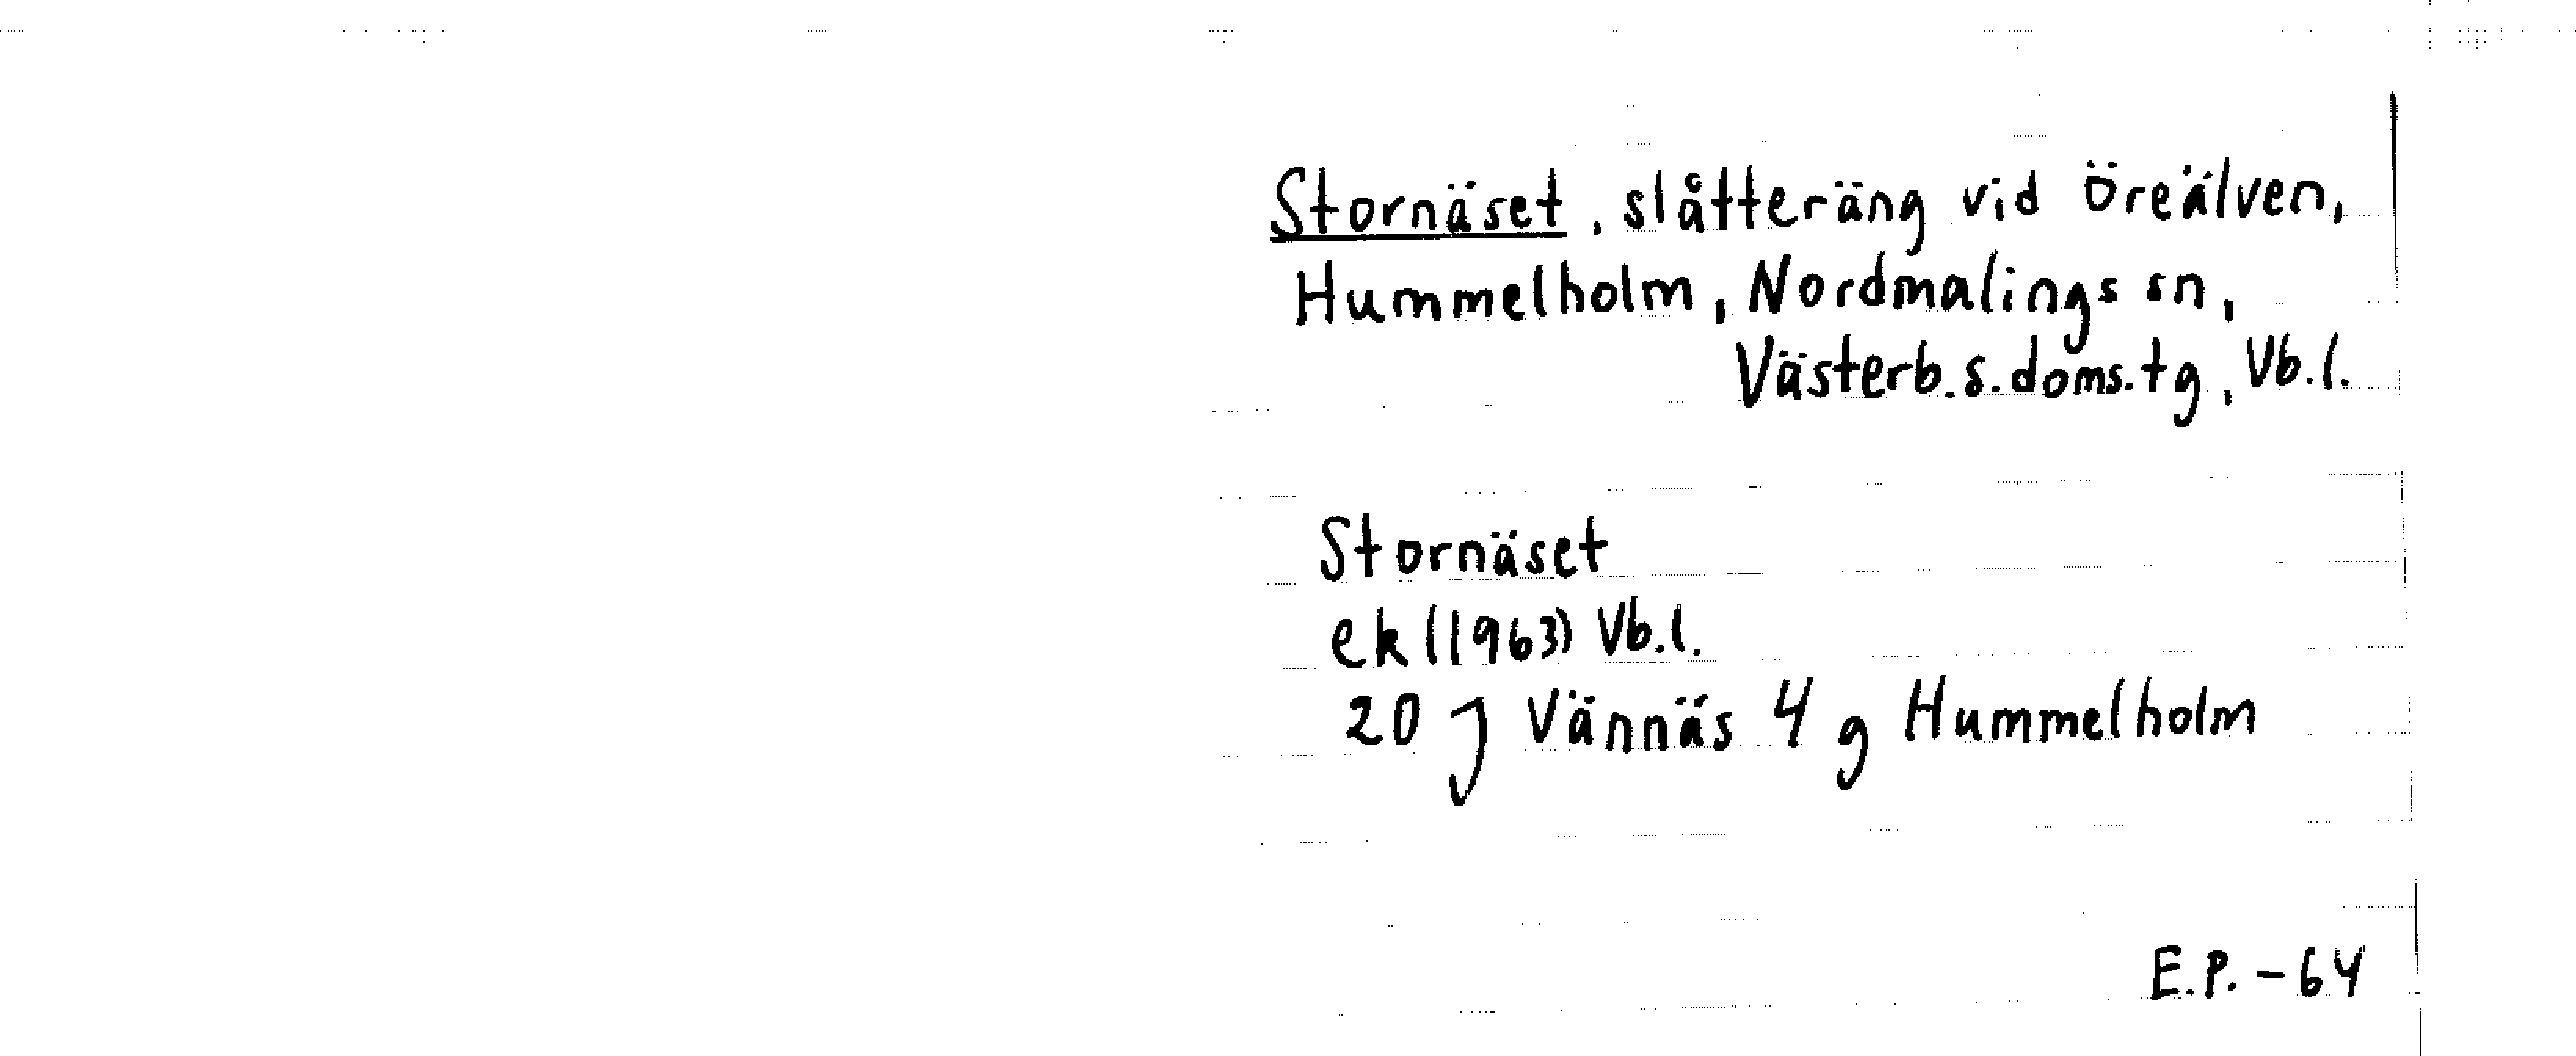 Stornäset, slåtteräng vid Öreälven,
Hummelholm, Nordmalings sn,
Västerb.s.doms.tg, Vb.l.
Stornäset
ek (1963) Vb.l.
20 J Vännäs 4 g Hummelholm
E.P. - 64